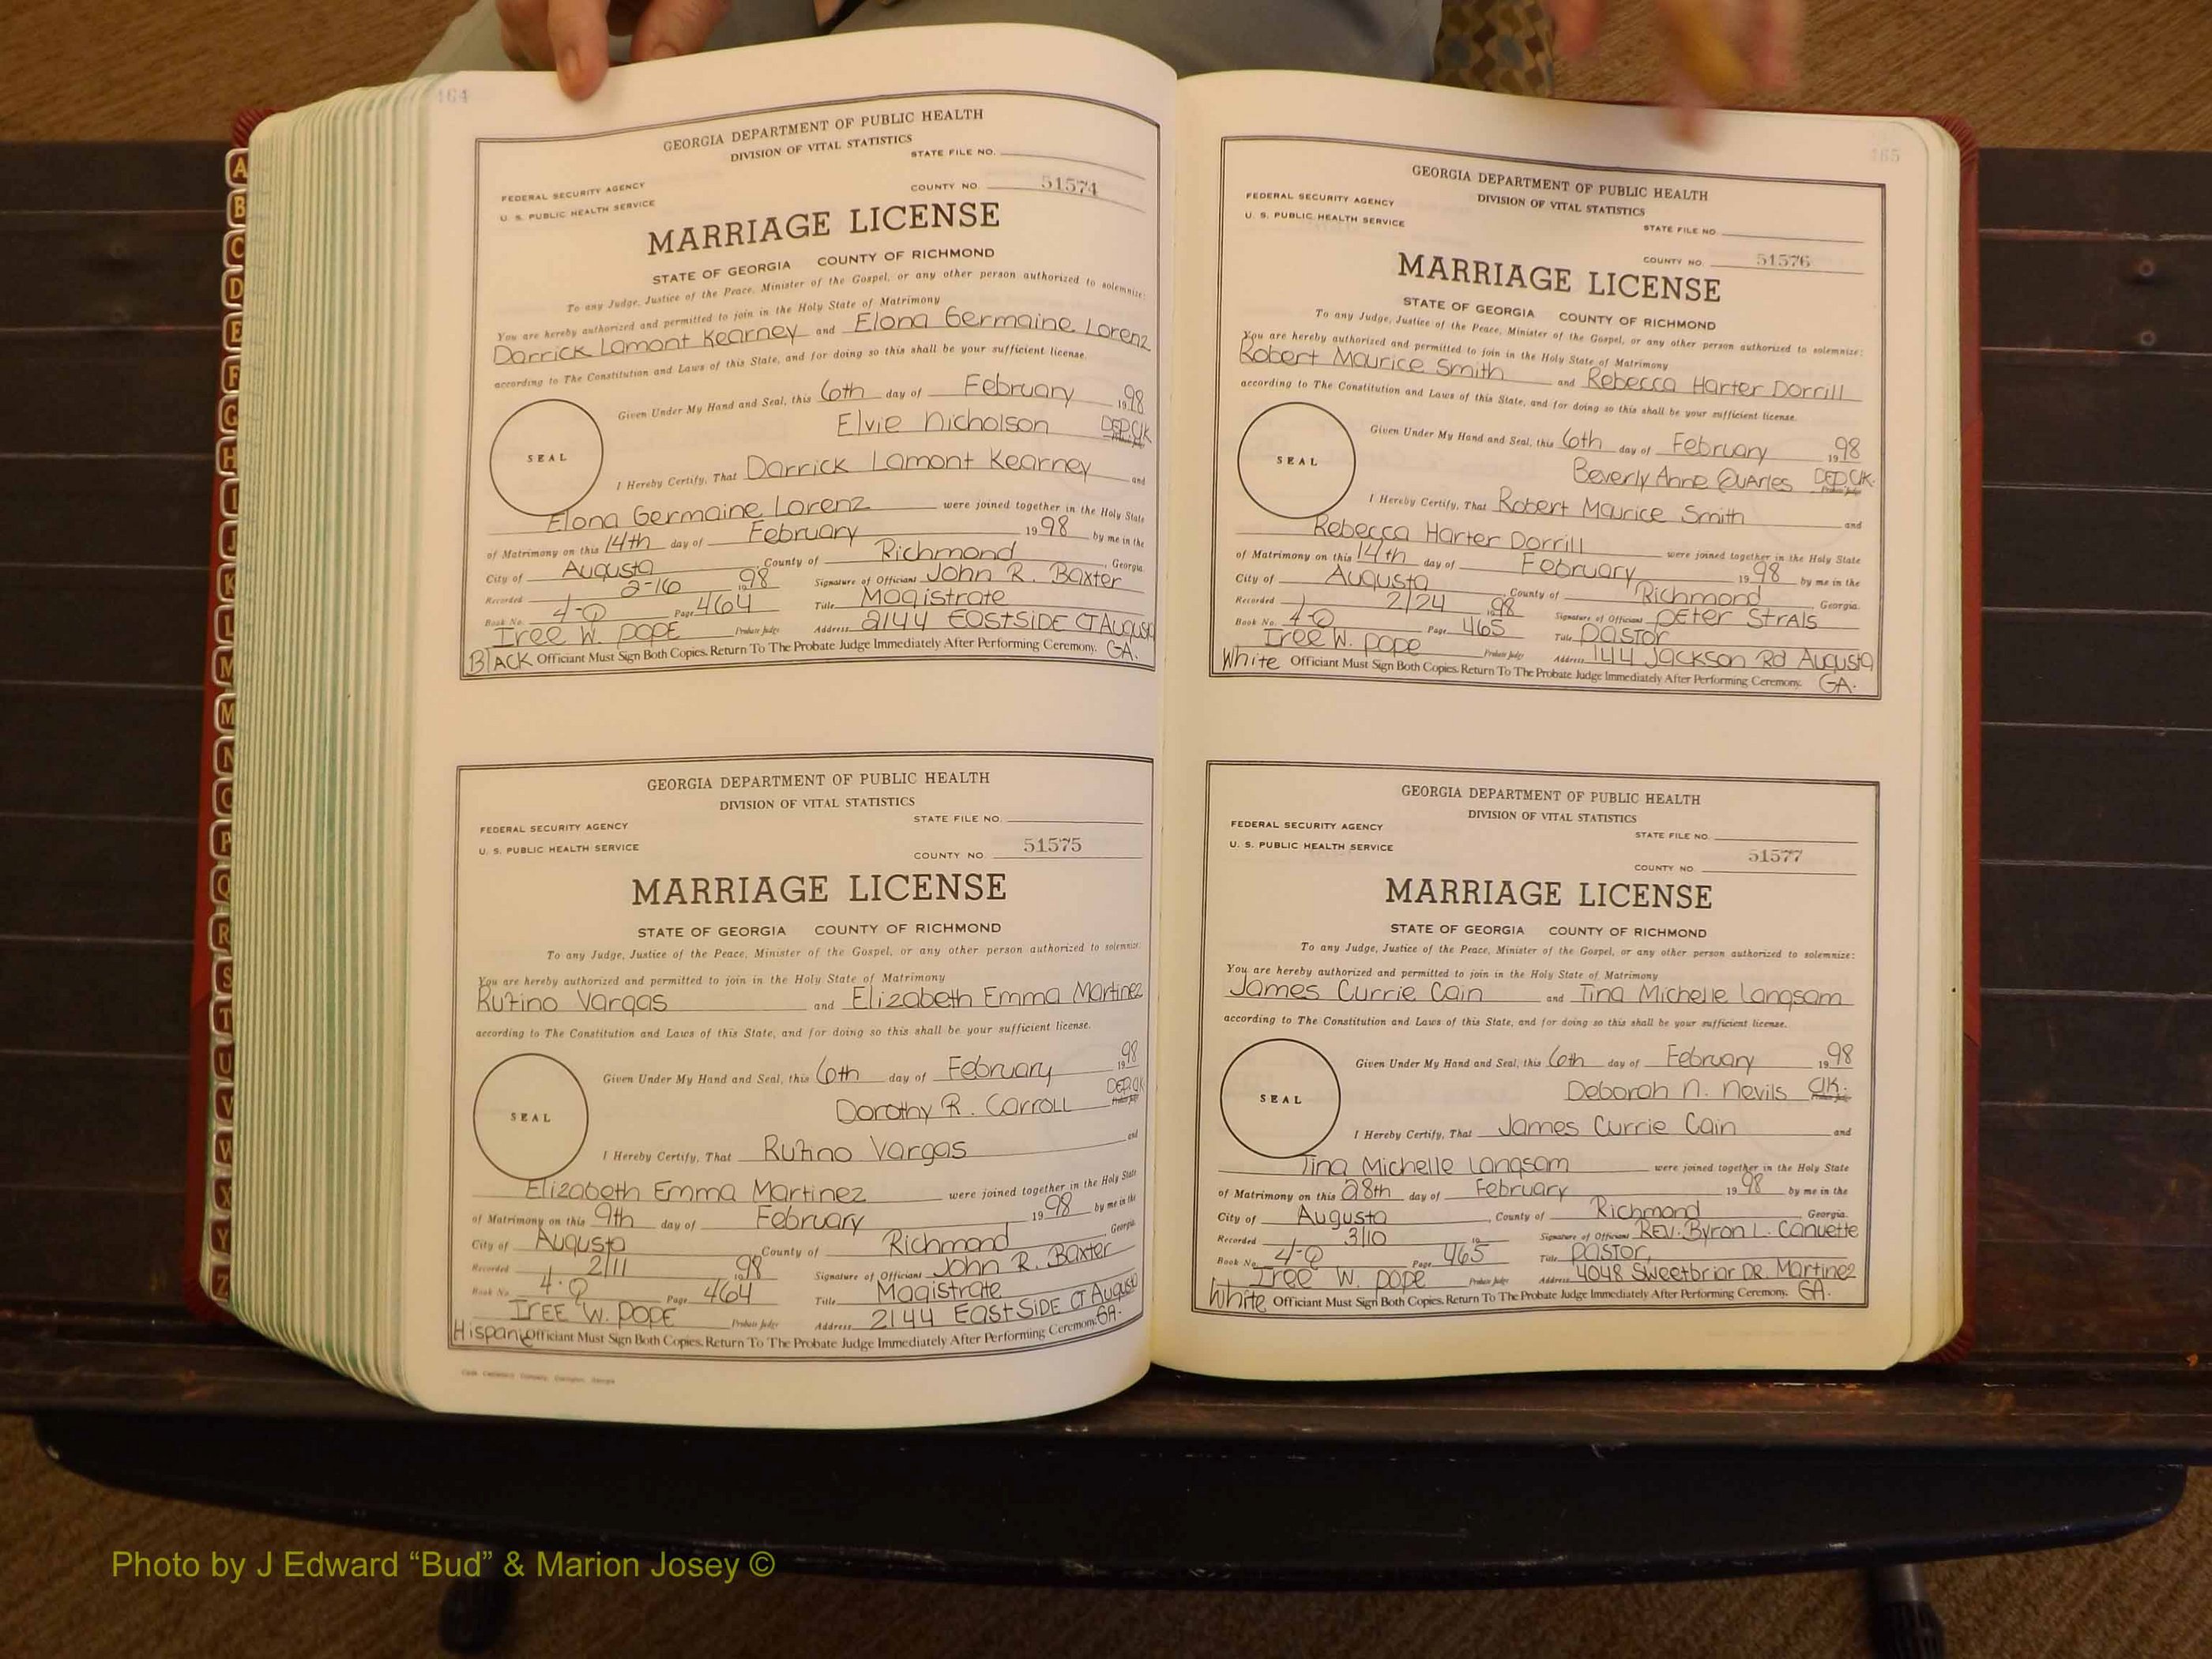 464
GEORGIA DEPARTMENT OF PUBLIC HEALTH
DIVISION OF VITAL STATISTICS
STATE FILE NO.
FEDERAL SECURITY AGENCY
U. S. PUBLIC HEALTH SERVICE
COUNTY NO. 51574
MARRIAGE LICENSE
STATE OF GEORGIA COUNTY OF RICHMOND
To any Judge, Justice of the Peace, Minister of the Gospel, or any other person authorized to solemnize:
You are hereby authorized and permitted to join in the Holy State of Matrimony
Darrick Lamont Kearney and Elona Germaine Lorenz
according to The Constitution and Laws of this State, and for doing so this shall be your sufficient license.
Given Under My Hand and Seal, this 6th day of February 1998
Elvie Nicholson DEP.Clk
SEAL
I Hereby Certify, That Darrick Lamont Kearney and
Elona Germaine Lorenz were joined together in the Holy State
of Matrimony on this 14th day of February 1998 by me in the
City of Augusta County of Richmond Georgia.
Recorded 2-16 1998 Signature of Officiant John R. Baxter
Book No. 4-Q Page 464 Title Magistrate
Iree W. POPE Probate Judge Address 2144 EASTSIDE CT Augusta
BlACK Officiant Must Sign Both Copies. Return To The Probate Judge Immediately After Performing Ceremony. GA.
GEORGIA DEPARTMENT OF PUBLIC HEALTH
DIVISION OF VITAL STATISTICS
STATE FILE NO.
FEDERAL SECURITY AGENCY
U. S. PUBLIC HEALTH SERVICE
COUNTY NO. 51575
MARRIAGE LICENSE
STATE OF GEORGIA COUNTY OF RICHMOND
To any Judge, Justice of the Peace, Minister of the Gospel, or any other person authorized to solemnize:
You are hereby authorized and permitted to join in the Holy State of Matrimony
Rufino Vargas and Elizabeth Emma Martinez
according to The Constitution and Laws of this State, and for doing so this shall be your sufficient license.
Given Under My Hand and Seal, this 6th day of February 1998
Dorothy R. Carroll DEP.Clk
SEAL
I Hereby Certify, That Rufino Vargas and
Elizabeth Emma Martinez were joined together in the Holy State
of Matrimony on this 9th day of February 1998 by me in the
City of Augusta County of Richmond Georgia
Recorded 2/11 1998 Signature of Officiant John R. Baxter
Book No. 4-Q Page 464 Title Magistrate
IREE W. POPE Probate Judge Address 2144 EASTSIDE CT Augusta
Hispanic Officiant Must Sign Both Copies. Return To The Probate Judge Immediately After Performing Ceremony. GA.
465
GEORGIA DEPARTMENT OF PUBLIC HEALTH
DIVISION OF VITAL STATISTICS
FEDERAL SECURITY AGENCY
U. S. PUBLIC HEALTH SERVICE
STATE FILE NO.
COUNTY NO. 51576
MARRIAGE LICENSE
STATE OF GEORGIA COUNTY OF RICHMOND
To any Judge, Justice of the Peace, Minister of the Gospel, or any other person authorized to solemnize:
You are hereby authorized and permitted to join in the Holy State of Matrimony
Robert Maurice Smith and Rebecca Harter Dorrill
according to The Constitution and Laws of this State, and for doing so this shall be your sufficient license.
Given Under My Hand and Seal, this 6th day of February 1998
Beverly Anne Quarles DEP.Clk.
SEAL
I Hereby Certify, That Robert Maurice Smith and
Rebecca Harter Dorrill were joined together in the Holy State
of Matrimony on this 14th day of February 1998 by me in the
City of Augusta County of Richmond Georgia.
Recorded 2/24 1998 Signature of Officiant PETER StrAls
Book No. 4-Q Page 465 Title PASTOR
Iree W. POPE Probate Judge Address 144 Jackson Rd Augusta
White Officiant Must Sign Both Copies. Return To The Probate Judge Immediately After Performing Ceremony. GA.
GEORGIA DEPARTMENT OF PUBLIC HEALTH
DIVISION OF VITAL STATISTICS
FEDERAL SECURITY AGENCY
U. S. PUBLIC HEALTH SERVICE
STATE FILE NO.
COUNTY NO. 51577
MARRIAGE LICENSE
STATE OF GEORGIA COUNTY OF RICHMOND
To any Judge, Justice of the Peace, Minister of the Gospel, or any other person authorized to solemnize:
You are hereby authorized and permitted to join in the Holy State of Matrimony
James Currie Cain and Tina Michelle Langsam
according to The Constitution and Laws of this State, and for doing so this shall be your sufficient license.
Given Under My Hand and Seal, this 6th day of February 1998
Deborah N. Nevils Clk.
SEAL
I Hereby Certify, That James Currie Cain and
Tina Michelle Langsam were joined together in the Holy State
of Matrimony on this 28th day of February 1998 by me in the
City of Augusta, County of Richmond Georgia.
Recorded 3/10 19 Signature of Officiant REV. Byron L. Canuette
Book No. 4-Q Page 465 Title PASTOR
Iree W. POPE Probate Judge Address 4048 Sweetbriar DR. Martinez
White Officiant Must Sign Both Copies. Return To The Probate Judge Immediately After Performing Ceremony. GA.
A
B
C
D
E
F
G
H
I
J
K
L
M
M
N
O
P
Q
R
S
T
U
V
W
X
Y
Z
Photo by J Edward “Bud” & Marion Josey ©